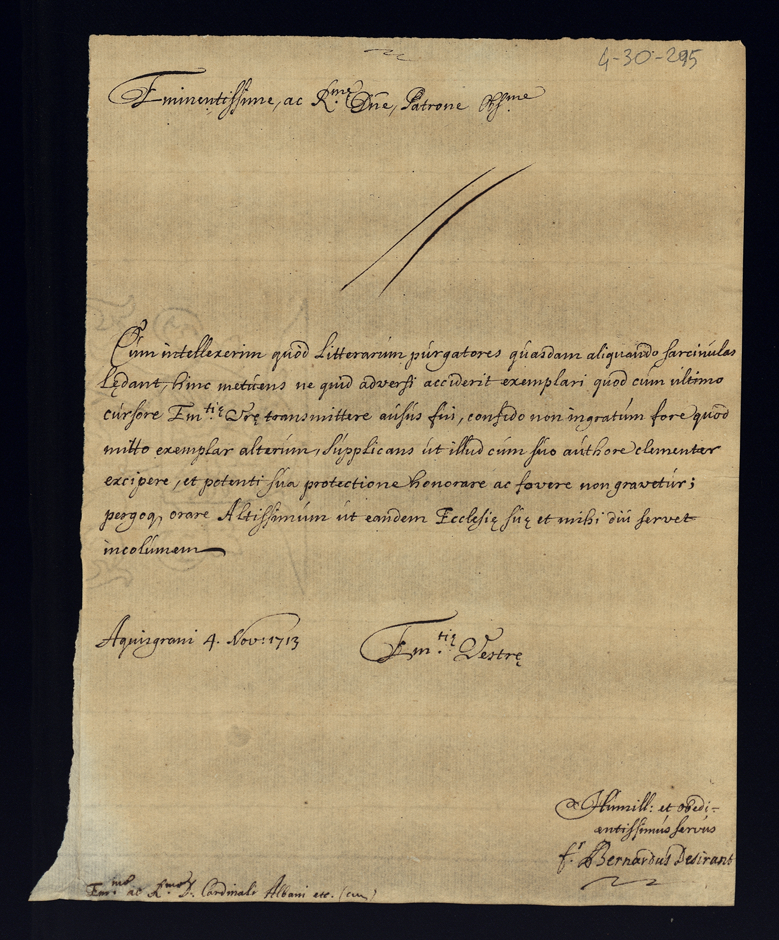 4-30-295
Eminentissime, ac R.me Dñe, Patrone Col.me
Cùm intellexerim quòd Litterarum purgatores quasdam aliquando sarcinulas
lędant, hinc metuens ne quid adversi acciderit exemplari quod cùm ultimo
cursore Em.tię Vrę transmittere ausus fui, confido non ingratum fore quòd
mitto exemplar alterum, supplicans ut illud cum suo authore clementer
excipere, et potenti sua protectione honorare ac fovere non gravetur;
pergoq, orare Altissimum ut eandem Ecclesię suę et mihi diu servet
incolumem
Aquisgrani 4. Nov: 1713
Em.tię Vestrę
Humill: et obedi-
entissimus servus
f.r Bernardus Desirant
Em.mo ac R.mo D. Cardinali Albani etc.